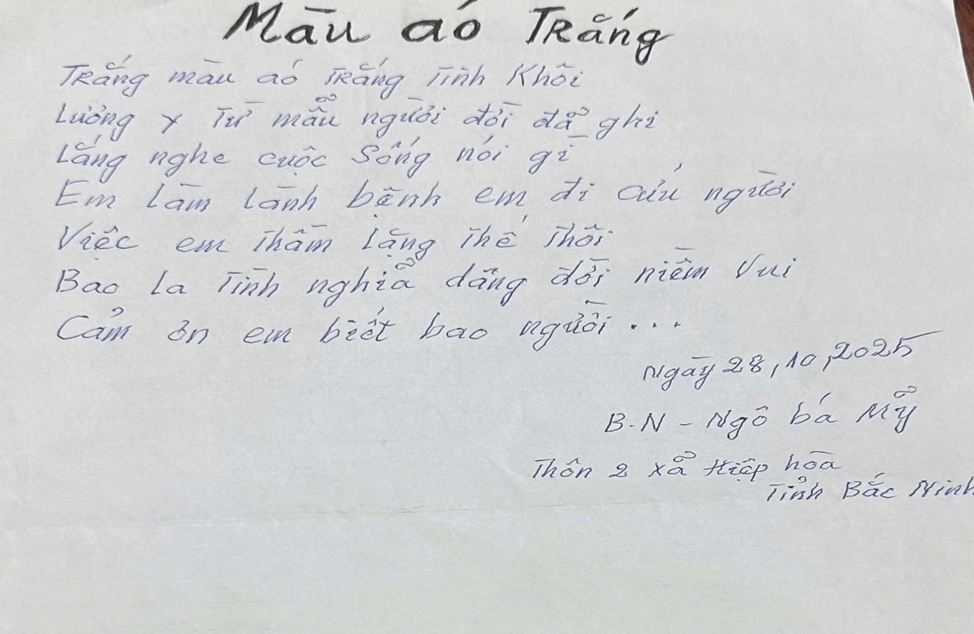 Màu áo Trắng
Trắng màu áo trắng Tinh Khôi
Lương y Từ mẫu người đời đã ghi
Lắng nghe cuộc Sống nói gì
Em làm lành bệnh em đi cứu người
Việc em Thầm lặng Thế Thôi
Bao la Tình nghĩa dâng đời niềm vui
Cảm ơn em biết bao người...
Ngày 28,10,2025
B.N - Ngô bá Mỹ
Thôn 2 xã Hiệp hòa
Tỉnh Bắc Ninh